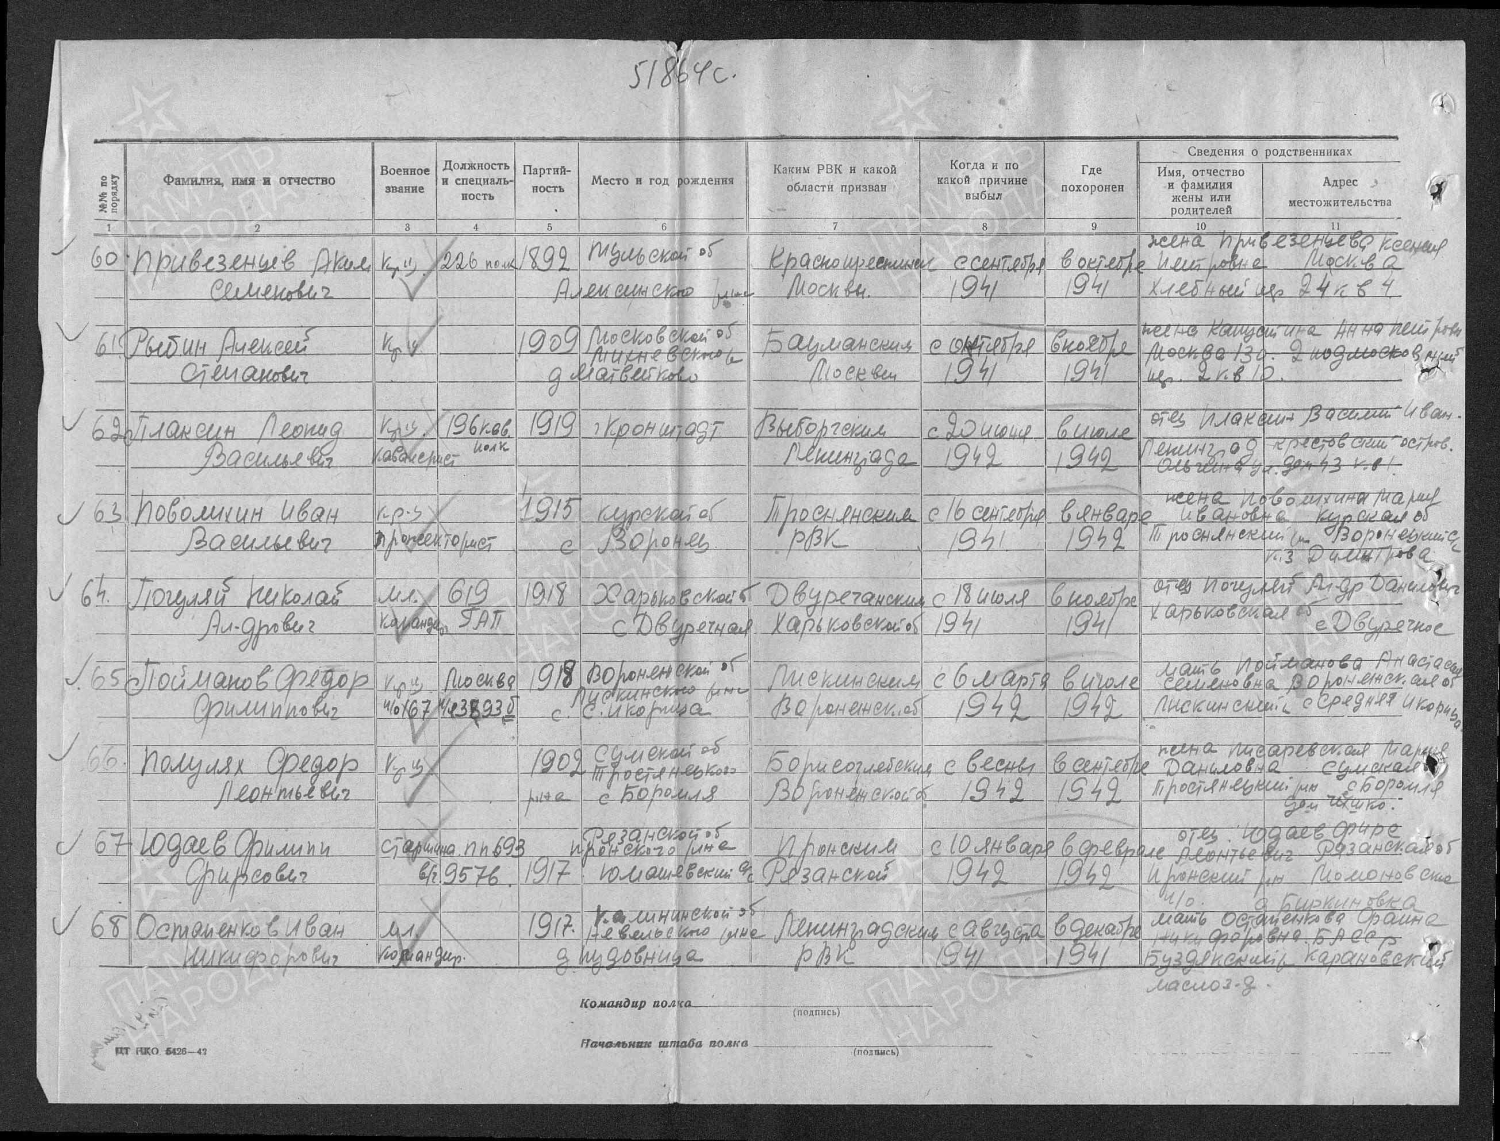 51864с.
№№ по порядку
Фамилия, имя и отчество
Военное звание
Должность и специаль- ность
Партий- ность
Место и год рождения
Каким РВК и какой области призван
Когда и по какой причине выбыл
Где похоронен
Сведения о родственниках
Имя, отчество и фамилия жены или родителей
Адрес местожительства
1 2 3 4 5 6 7 8 9 10 11
60 Привезенцев Аким Кр-ц 226 полк 1892 Тульской об Краснопресненск с сентября в октябре жена Привезенцева Ксения
Семенович Алексинского р-на Москвы. 1941 1941 Петровна Москва
Хлебный пер 24 кв 4
61 Рыбин Алексей Кр-ц 1909 Московской об Бауманским с октября в ноябре жена Капустина Анна Петров
Степанович Михневского р д Матвейково Москвы 1941 1941 Москва 2 подмосковный
пер. 2 кв 10.
62 Плаксин Леонид Кр-ц 196 кав. 1919 г Кронштадт Выборгским с 20 июня в июле отец Плаксин Василий Иван.
Васильевич кавалерист полк Ленинграда 1942 1942 Ленинград крестовский остров.
Ольгина ул. дом 43 кв 1.
63 Поволихин Иван кр-ц 1915 курской об Троснянским с 16 сентября в январе жена Поволихина Мария
Васильевич прожекторист с Воронец РВК 1941 1942 Ивановна курская об
Троснянский рн Воронецкий с/с
к-з Димитрова
64. Погуляй Николай мл. 619 1918 Харьковской об Двуречанским с 18 июля в ноябре отец Погуляй Ал-др Данилович
Ал-дрович командир ГАП с Двуречная Харьковской об 1941 1941 Харьковская об
с Двуречное
65 Пойманов Федор кр-ц Москва 1918 Вороненской об Лискинским с 6 марта в июле мать Пойманова Анастасия
Филиппович п/о 167 п/я 3893б Лискинского р-на с. С. Икорица Вороненск.об 1942 1942 Семеновна Вороненская об
Лискинский р с Средняя Икорица
66. Полулях Федор Кр-ц 1902 Сумской об Борисоглебским с весны в сентябре жена Писаревская Мария
Леонтьевич Тростянецкого р-на с Боромля Вороненской об 1942 1942 Даниловна Сумская
Тростянецкий рн с Боромля
67 Юдаев Филипп старшина пп 693 Рязанской об Пронским с 10 января в феврале отец Юдаев Фирс
Фирсович в/ч 957в. 1917 Пронского р-на Юмашевский с/с Рязанской 1942 1942 Леонтьевич Рязанская об
Пронский рн
п/о. д Биркиновка
68 Остапенков Иван мл. 1917. Калининской об Ленинградским с августа в декабре мать Остапенкова Фраина
Никифорович командир. Невельского р-на д Рудовница РВК 1941 1941 Никифоровна. БАССР
Буздякский р Карановский
маслоз-д.
Командир полка
(подпись)
Начальник штаба полка
(подпись)
ЦТ НКО 5426—42
ПАМЯТЬ НАРОДА